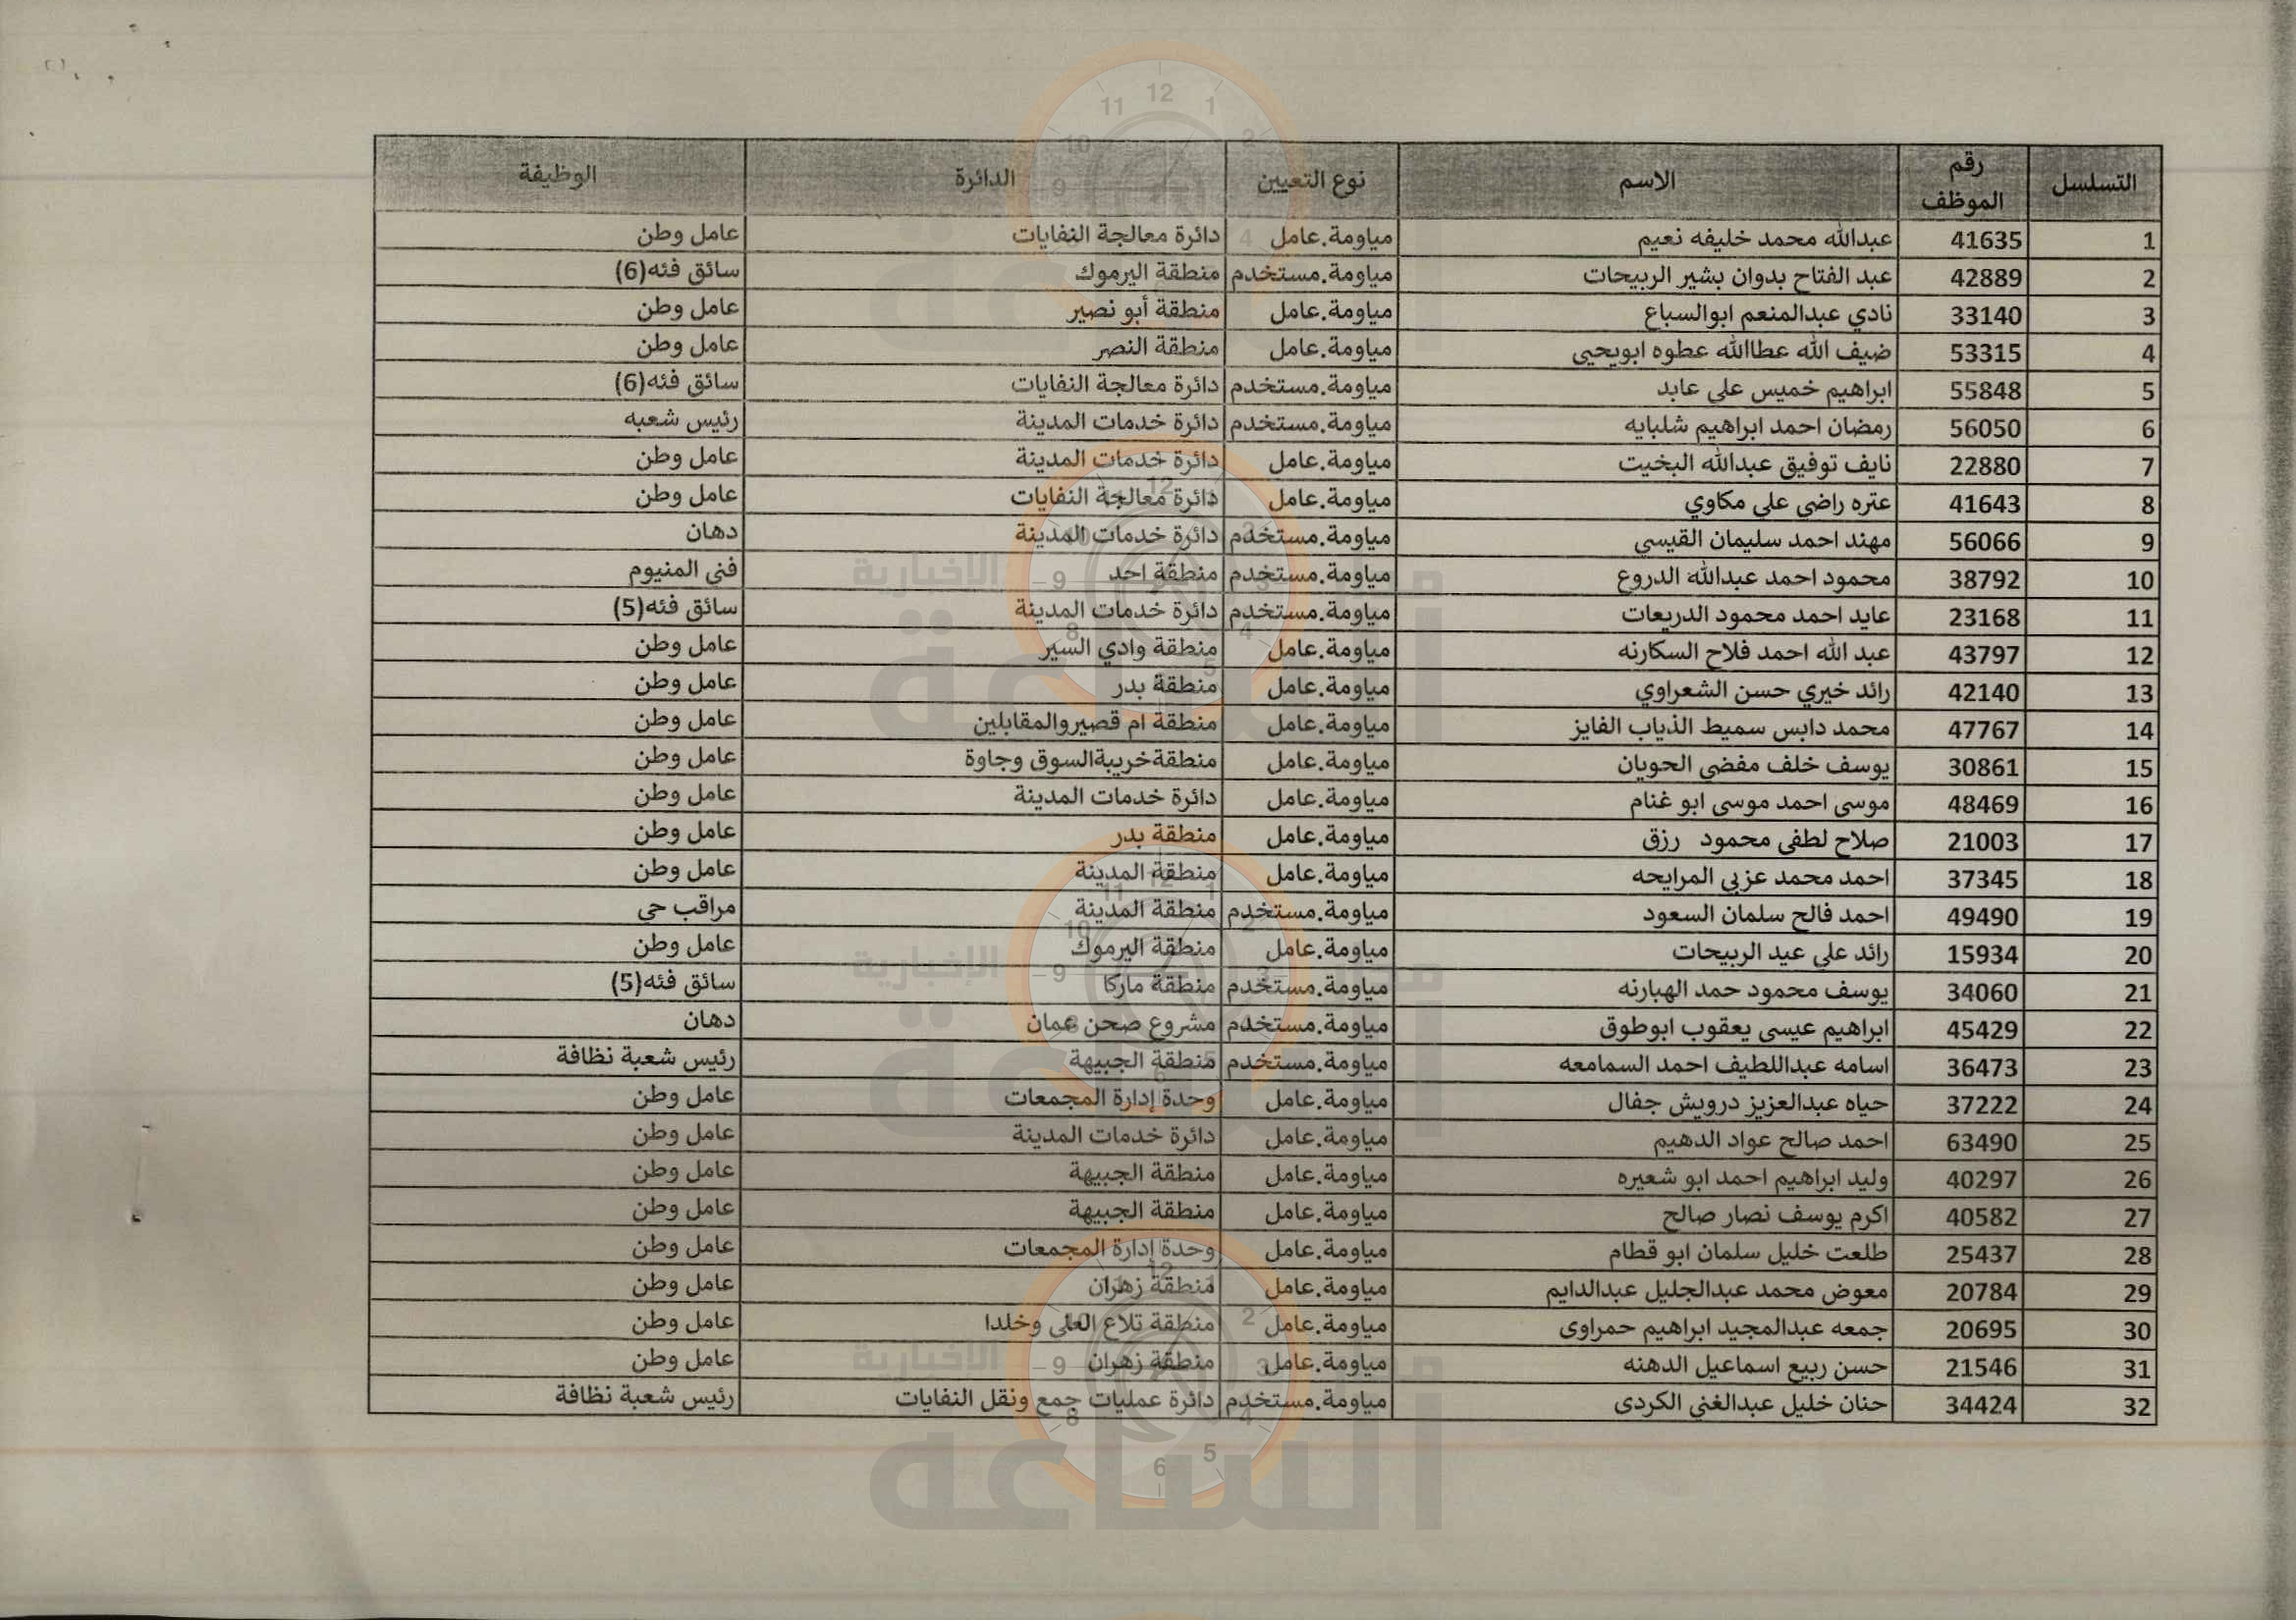 التسلسل رقم الموظف الاسم نوع التعيين الدائرة الوظيفة
1 41635 عبدالله محمد خليفه نعيم مياومة.عامل دائرة معالجة النفايات عامل وطن
2 42889 عبد الفتاح بدوان بشير الربيحات مياومة.مستخدم منطقة اليرموك سائق فئه(6)
3 33140 نادي عبدالمنعم ابوالسباع مياومة.عامل منطقة أبو نصير عامل وطن
4 53315 ضيف الله عطاالله عطوه ابويحيى مياومة.عامل منطقة النصر عامل وطن
5 55848 ابراهيم خميس علي عابد مياومة.مستخدم دائرة معالجة النفايات سائق فئه(6)
6 56050 رمضان احمد ابراهيم شلبايه مياومة.مستخدم دائرة خدمات المدينة رئيس شعبه
7 22880 نايف توفيق عبدالله البخيت مياومة.عامل دائرة خدمات المدينة عامل وطن
8 41643 عتره راضي علي مكاوي مياومة.عامل دائرة معالجة النفايات عامل وطن
9 56066 مهند احمد سليمان القيسي مياومة.مستخدم دائرة خدمات المدينة دهان
10 38792 محمود احمد عبدالله الدروع مياومة.مستخدم منطقة احد فني المنيوم
11 23168 عايد احمد محمود الدريعات مياومة.مستخدم دائرة خدمات المدينة سائق فئه(5)
12 43797 عبد الله احمد فلاح السكارنه مياومة.عامل منطقة وادي السير عامل وطن
13 42140 رائد خيري حسن الشعراوي مياومة.عامل منطقة بدر عامل وطن
14 47767 محمد دابس سميط الذياب الفايز مياومة.عامل منطقة ام قصيروالمقابلين عامل وطن
15 30861 يوسف خلف مفضي الحويان مياومة.عامل منطقةخريبةالسوق وجاوة عامل وطن
16 48469 موسى احمد موسى ابو غنام مياومة.عامل دائرة خدمات المدينة عامل وطن
17 21003 صلاح لطفي محمود رزق مياومة.عامل منطقة بدر عامل وطن
18 37345 احمد محمد عزبي المرايحه مياومة.عامل منطقة المدينة عامل وطن
19 49490 احمد فالح سلمان السعود مياومة.مستخدم منطقة المدينة مراقب حي
20 15934 رائد علي عيد الربيحات مياومة.عامل منطقة اليرموك عامل وطن
21 34060 يوسف محمود حمد الهبارنه مياومة.مستخدم منطقة ماركا سائق فئه(5)
22 45429 ابراهيم عيسى يعقوب ابوطوق مياومة.مستخدم مشروع صحن عمان دهان
23 36473 اسامه عبداللطيف احمد السمامعه مياومة.مستخدم منطقة الجبيهة رئيس شعبة نظافة
24 37222 حياه عبدالعزيز درويش جفال مياومة.عامل وحدة إدارة المجمعات عامل وطن
25 63490 احمد صالح عواد الدهيم مياومة.عامل دائرة خدمات المدينة عامل وطن
26 40297 وليد ابراهيم احمد ابو شعيره مياومة.عامل منطقة الجبيهة عامل وطن
27 40582 اكرم يوسف نصار صالح مياومة.عامل منطقة الجبيهة عامل وطن
28 25437 طلعت خليل سلمان ابو قطام مياومة.عامل وحدة إدارة المجمعات عامل وطن
29 20784 معوض محمد عبدالجليل عبدالدايم مياومة.عامل منطقة زهران عامل وطن
30 20695 جمعه عبدالمجيد ابراهيم حمراوى مياومة.عامل منطقة تلاع العلي وخلدا عامل وطن
31 21546 حسن ربيع اسماعيل الدهنه مياومة.عامل منطقة زهران عامل وطن
32 34424 حنان خليل عبدالغني الكردى مياومة.مستخدم دائرة عمليات جمع ونقل النفايات رئيس شعبة نظافة
الساعة